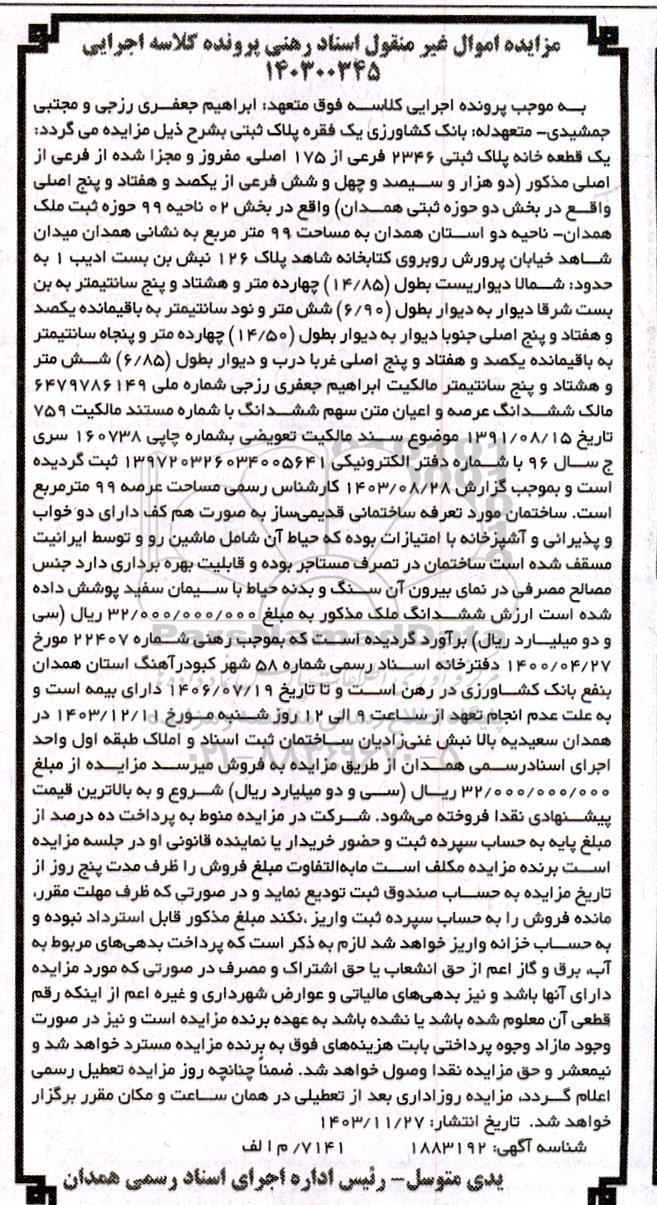 مزایده اموال غیر منقول اسناد رهنی پرونده کلاسه اجرایی
۱۴۰۳۰۰۳۴۵
به موجب پرونده اجرایی کلاسه فوق متعهد: ابراهیم جعفری رزجی و مجتبی
جمشیدی- متعهدله: بانک کشاورزی یک فقره پلاک ثبتی بشرح ذیل مزایده می گردد:
یک قطعه خانه پلاک ثبتی ۲۳۴۶ فرعی از ۱۷۵ اصلی، مفروز و مجزا شده از فرعی از
اصلی مذکور (دو هزار و سیصد و چهل و شش فرعی از یکصد و هفتاد و پنج اصلی
واقع در بخش دو حوزه ثبتی همدان) واقع در بخش ۰۲ ناحیه ۹۹ حوزه ثبت ملک
همدان- ناحیه دو استان همدان به مساحت ۹۹ متر مربع به نشانی همدان میدان
شاهد خیابان پرورش روبروی کتابخانه شاهد پلاک ۱۲۶ نبش بن بست ادیب ۱ به
حدود: شمالا دیواریست بطول (۱۴/۸۵) چهارده متر و هشتاد و پنج سانتیمتر به بن
بست شرقا دیوار به دیوار بطول (۶/۹۰) شش متر و نود سانتیمتر به باقیمانده یکصد
و هفتاد و پنج اصلی جنوبا دیوار به دیوار بطول (۱۴/۵۰) چهارده متر و پنجاه سانتیمتر
به باقیمانده یکصد و هفتاد و پنج اصلی غربا درب و دیوار بطول (۶/۸۵) شش متر
و هشتاد و پنج سانتیمتر مالکیت ابراهیم جعفری رزجی شماره ملی ۶۴۷۹۷۸۶۱۴۹
مالک ششدانگ عرصه و اعیان متن سهم ششدانگ با شماره مستند مالکیت ۷۵۹
تاریخ ۱۳۹۱/۰۸/۱۵ موضوع سند مالکیت تعویضی بشماره چاپی ۱۶۰۷۳۸ سری
ج سال ۹۶ با شماره دفتر الکترونیکی ۱۳۹۷۲۰۳۲۶۰۳۴۰۰۵۶۴۱ ثبت گردیده
است و بموجب گزارش ۱۴۰۳/۰۸/۲۸ کارشناس رسمی مساحت عرصه ۹۹ مترمربع
است. ساختمان مورد تعرفه ساختمانی قدیمی‌ساز به صورت هم کف دارای دو خواب
و پذیرائی و آشپزخانه با امتیازات بوده که حیاط آن شامل ماشین رو و توسط ایرانیت
مسقف شده است ساختمان در تصرف مستاجر بوده و قابلیت بهره برداری دارد جنس
مصالح مصرفی در نمای بیرون آن سنگ و بدنه حیاط با سیمان سفید پوشش داده
شده است ارزش ششدانگ ملک مذکور به مبلغ ۳۲/۰۰۰/۰۰۰/۰۰۰ ریال (سی
و دو میلیارد ریال) برآورد گردیده است که بموجب رهنی شماره ۲۲۴۰۷ مورخ
۱۴۰۰/۰۴/۲۷ دفترخانه اسناد رسمی شماره ۵۸ شهر کبودرآهنگ استان همدان
بنفع بانک کشاورزی در رهن است و تا تاریخ ۱۴۰۶/۰۷/۱۹ دارای بیمه است و
به علت عدم انجام تعهد از ساعت ۹ الی ۱۲ روز شنبه مورخ ۱۴۰۳/۱۲/۱۱ در
همدان سعیدیه بالا نبش غنی‌زادیان ساختمان ثبت اسناد و املاک طبقه اول واحد
اجرای اسنادرسمی همدان از طریق مزایده به فروش میرسد مزایده از مبلغ
۳۲/۰۰۰/۰۰۰/۰۰۰ ریال (سی و دو میلیارد ریال) شروع و به بالاترین قیمت
پیشنهادی نقدا فروخته می‌شود. شرکت در مزایده منوط به پرداخت ده درصد از
مبلغ پایه به حساب سپرده ثبت و حضور خریدار یا نماینده قانونی او در جلسه مزایده
است برنده مزایده مکلف است مابه‌التفاوت مبلغ فروش را ظرف مدت پنج روز از
تاریخ مزایده به حساب صندوق ثبت تودیع نماید و در صورتی که ظرف مهلت مقرر،
مانده فروش را به حساب سپرده ثبت واریز ،نکند مبلغ مذکور قابل استرداد نبوده و
به حساب خزانه واریز خواهد شد لازم به ذکر است که پرداخت بدهی‌های مربوط به
آب، برق و گاز اعم از حق انشعاب یا حق اشتراک و مصرف در صورتی که مورد مزایده
دارای آنها باشد و نیز بدهی‌های مالیاتی و عوارض شهرداری و غیره اعم از اینکه رقم
قطعی آن معلوم شده باشد یا نشده باشد به عهده برنده مزایده است و نیز در صورت
وجود مازاد وجوه پرداختی بابت هزینه‌های فوق به برنده مزایده مسترد خواهد شد و
نیمعشر و حق مزایده نقدا وصول خواهد شد. ضمناً چنانچه روز مزایده تعطیل رسمی
اعلام گردد، مزایده روزاداری بعد از تعطیلی در همان ساعت و مکان مقرر برگزار
خواهد شد. تاریخ انتشار: ۱۴۰۳/۱۱/۲۷
شناسه آگهی: ۱۸۸۳۱۹۲ ۷۱۴۱/ م الف
یدی متوسل- رئیس اداره اجرای اسناد رسمی همدان